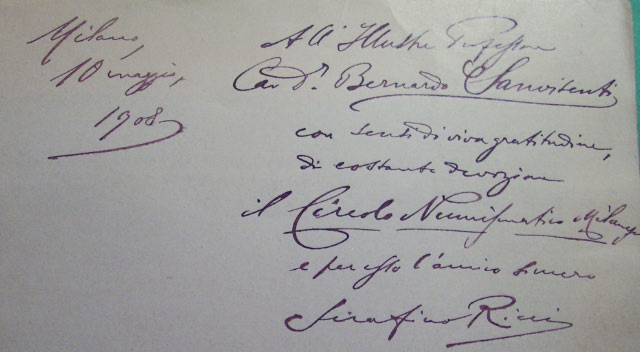 Milano,
10 maggio,
1908
All'Illustre Professore
Cav. Dr. Bernardo Sanvisenti
con sensi di viva gratitudine,
di costante devozione
il Circolo Numismatico Milanese
e per esso l'amico sincero
Serafino Ricci